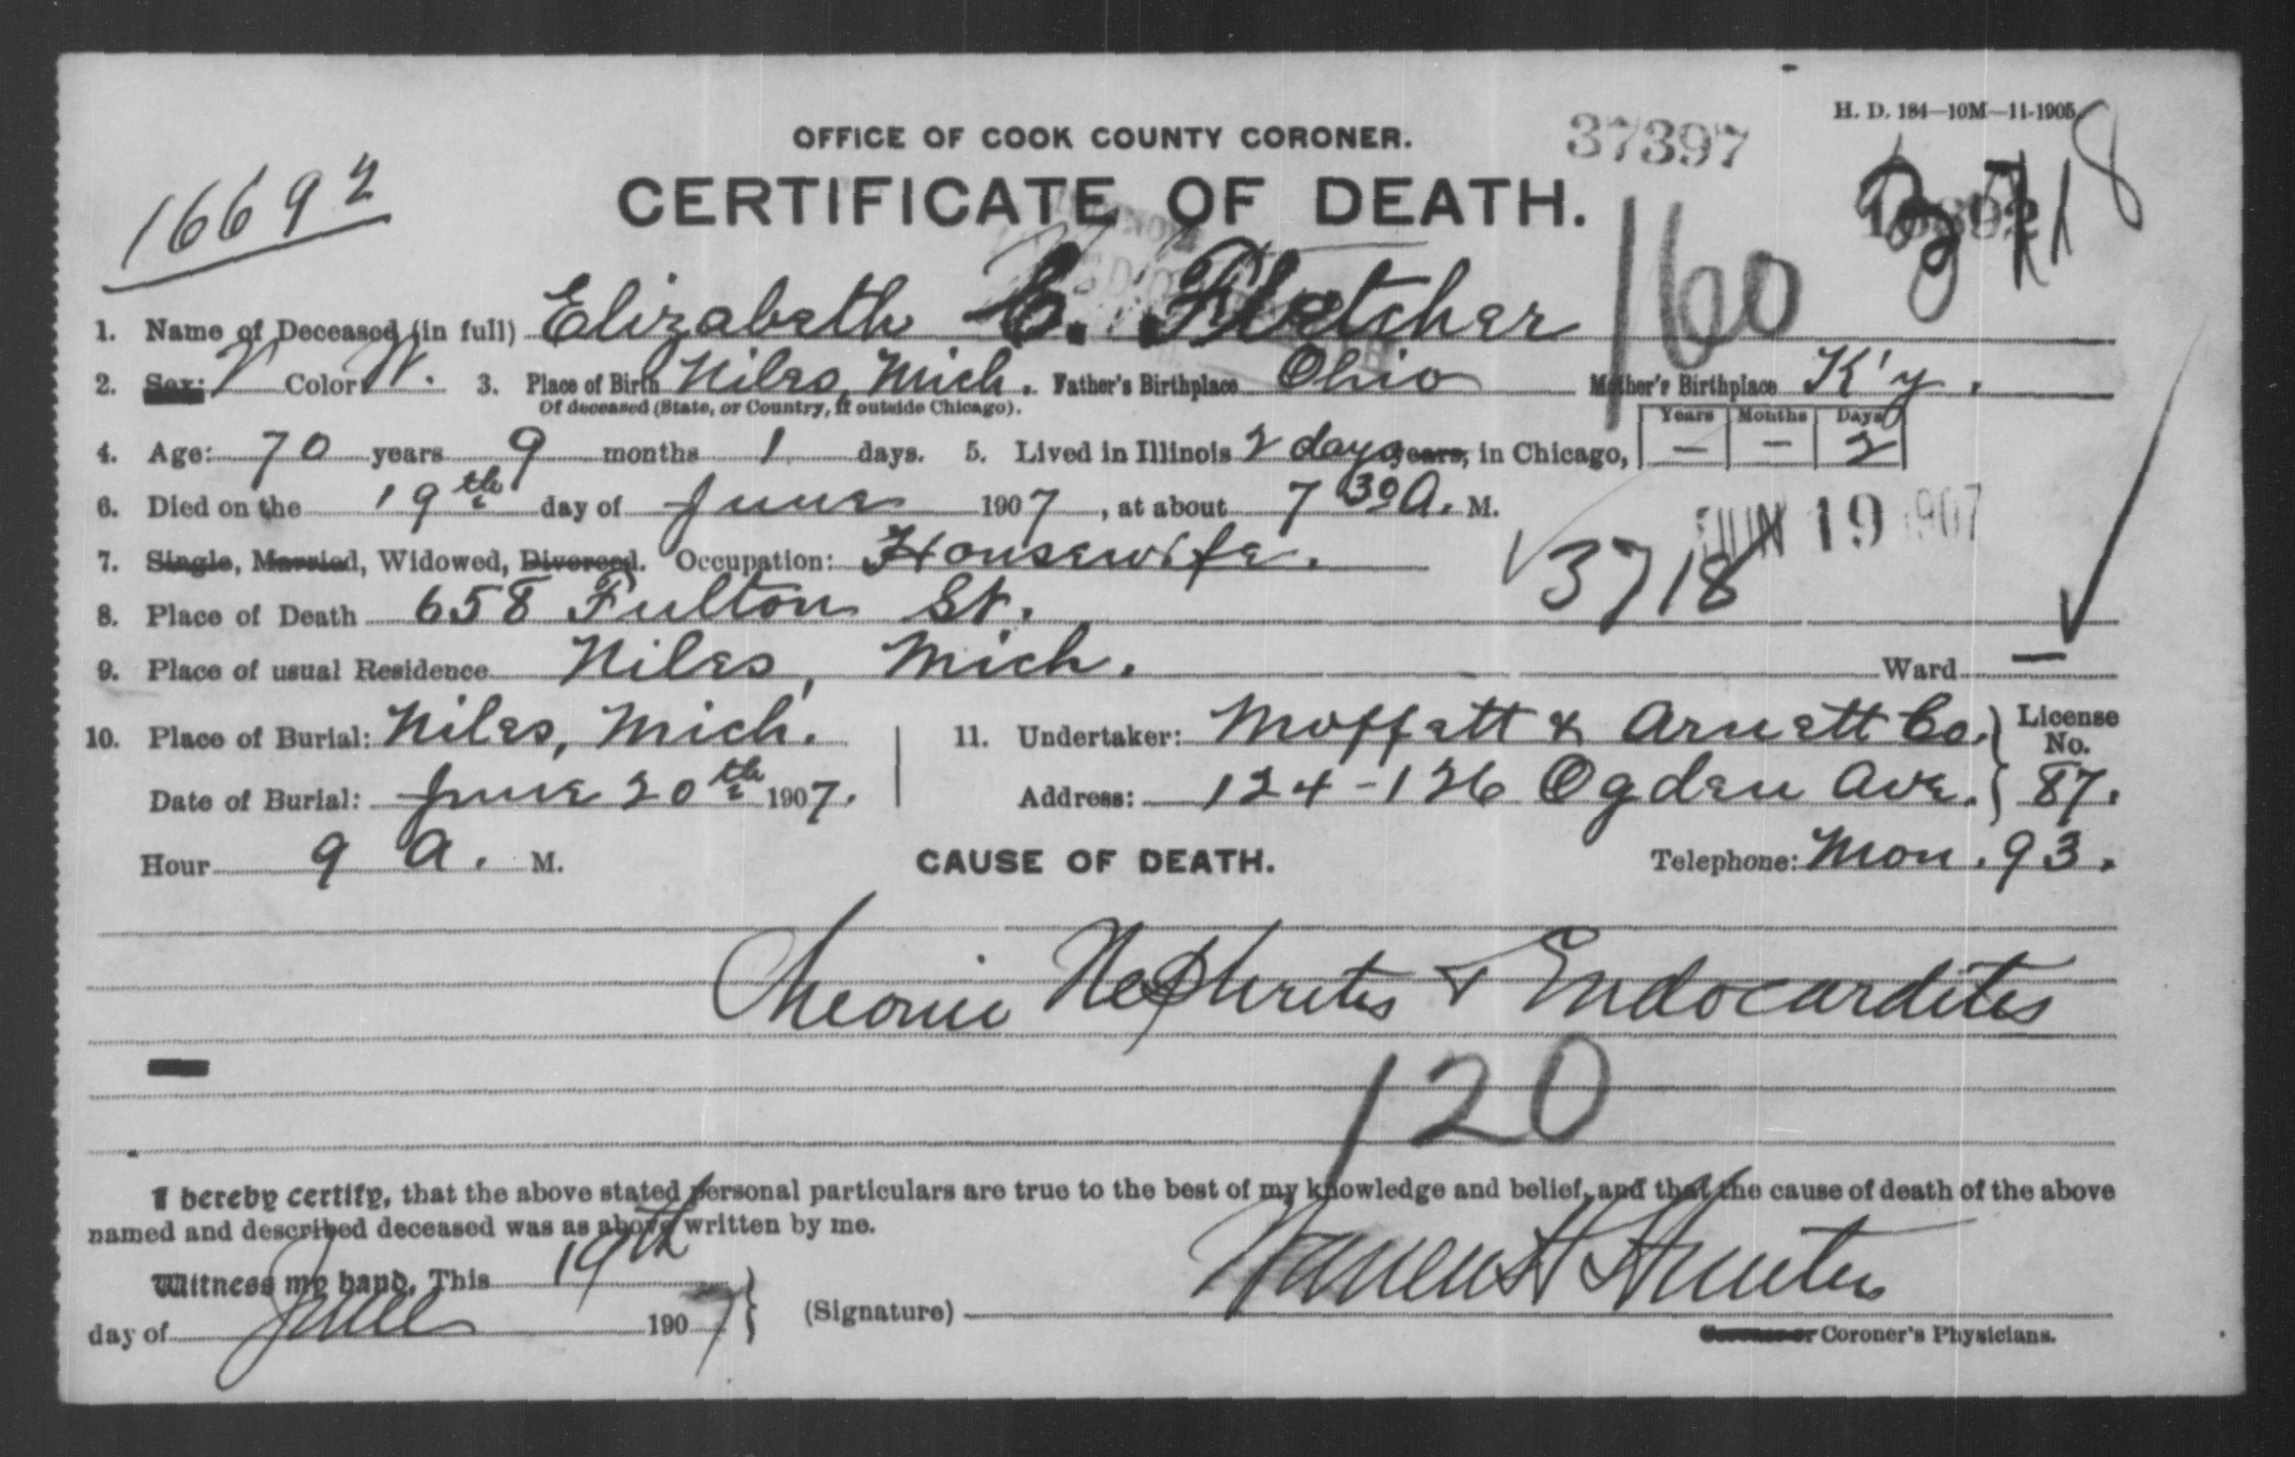 H. D. 184—10M—11-1905
OFFICE OF COOK COUNTY CORONER.
37397
16692
CERTIFICATE OF DEATH.
160
1. Name of Deceased (in full) Elizabeth C. Fletcher
2. Sex: Color W. 3. Place of Birth Niles, Mich. Father's Birthplace Ohio Mother's Birthplace K'y.
Of deceased (State, or Country, if outside Chicago).
Years Months Days
4. Age: 70 years 9 months 1 days. 5. Lived in Illinois 2 days years, in Chicago, — — 2
6. Died on the 19th day of June 1907, at about 7 30 A. M.
JUN 19 1907
7. Single, Married, Widowed, Divorced. Occupation: Housewife.
3718
8. Place of Death 658 Fulton St.
9. Place of usual Residence Niles, Mich. Ward —
10. Place of Burial: Niles, Mich. 11. Undertaker: Moffett & Arnett Co. License No.
Date of Burial: June 20th 1907. Address: 124-126 Ogden Ave. 87.
Hour 9 A. M. CAUSE OF DEATH. Telephone: Mon. 93.
Chronic Nephritis & Endocarditis
120
I hereby certify, that the above stated personal particulars are true to the best of my knowledge and belief, and that the cause of death of the above
named and described deceased was as above written by me.
Witness my hand, This 19th
day of June 1907 (Signature) Warren H Hunter
Coroner or Coroner's Physicians.